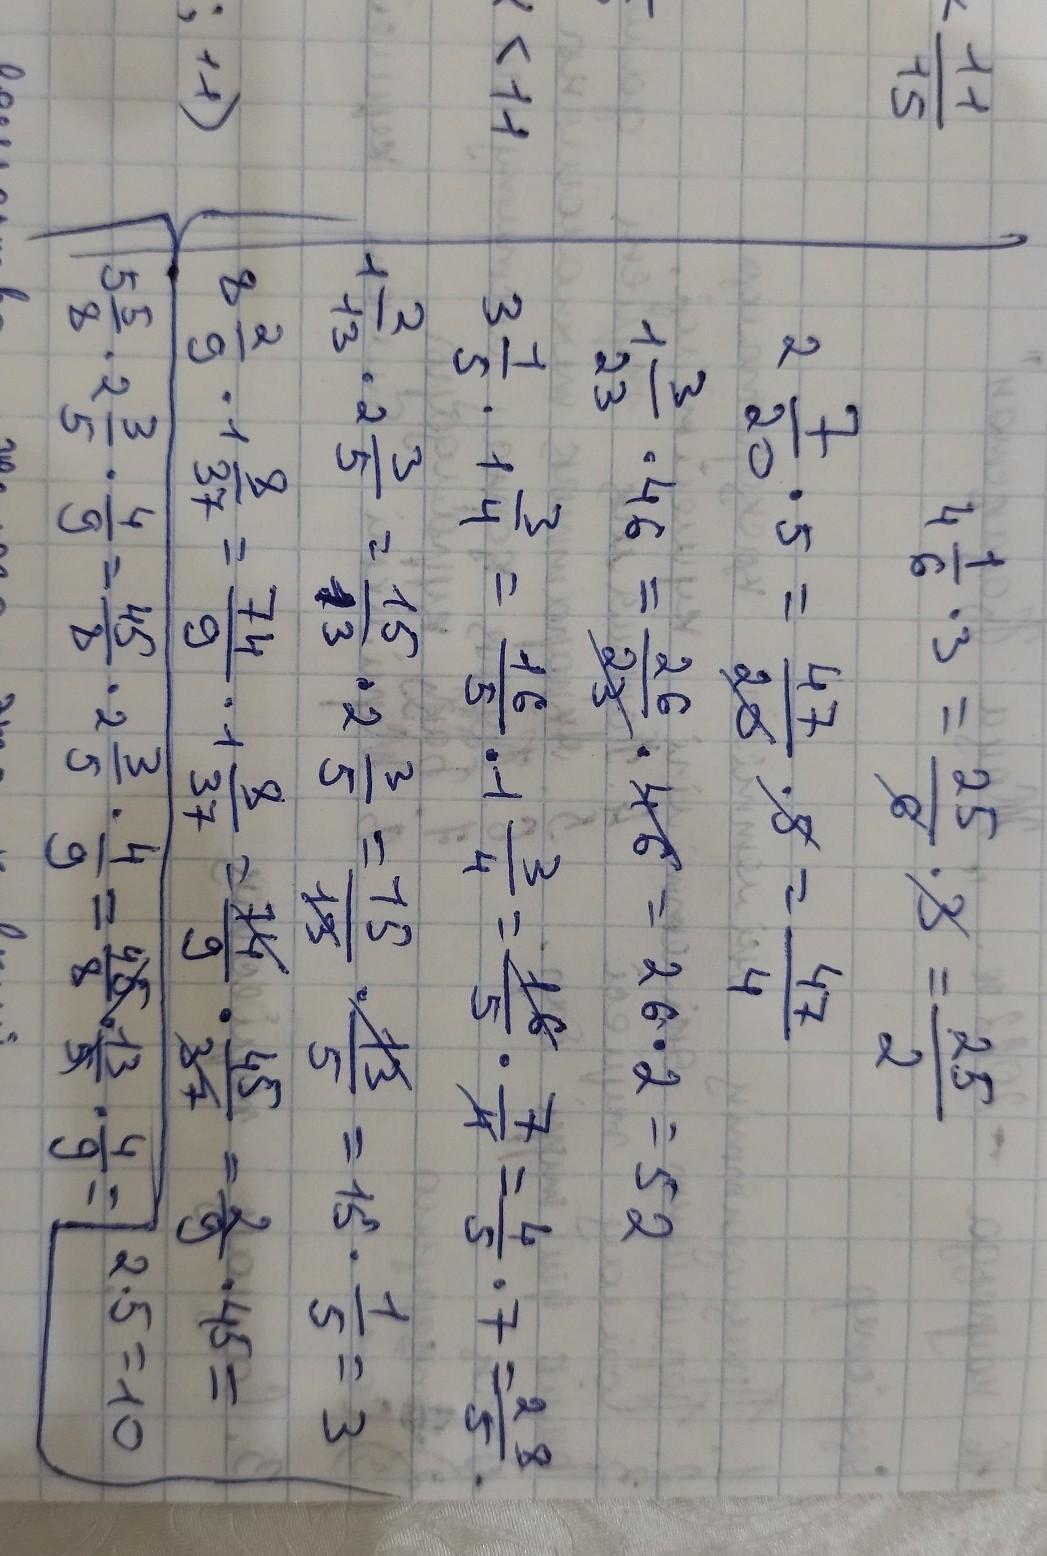 11/15
< 11
; 11)
4 1/6 · 3 = 25/6 · 3 = 25/2
2 7/20 · 5 = 47/20 · 5 = 47/4
1 3/23 · 46 = 26/23 · 46 = 26 · 2 = 52
3 1/5 · 1 3/4 = 16/5 · 1 3/4 = 16/5 · 7/4 = 4/5 · 7 = 28/5.
1 2/13 · 2 3/5 = 15/13 · 2 3/5 = 15/13 · 13/5 = 15 · 1/5 = 3
8 2/9 · 1 8/37 = 74/9 · 1 8/37 = 74/9 · 45/37 = 2/9 · 45 =
2 · 5 = 10
5 5/8 · 2 3/5 · 4/9 = 45/8 · 2 3/5 · 4/9 = 45/8 · 13/5 · 4/9 =